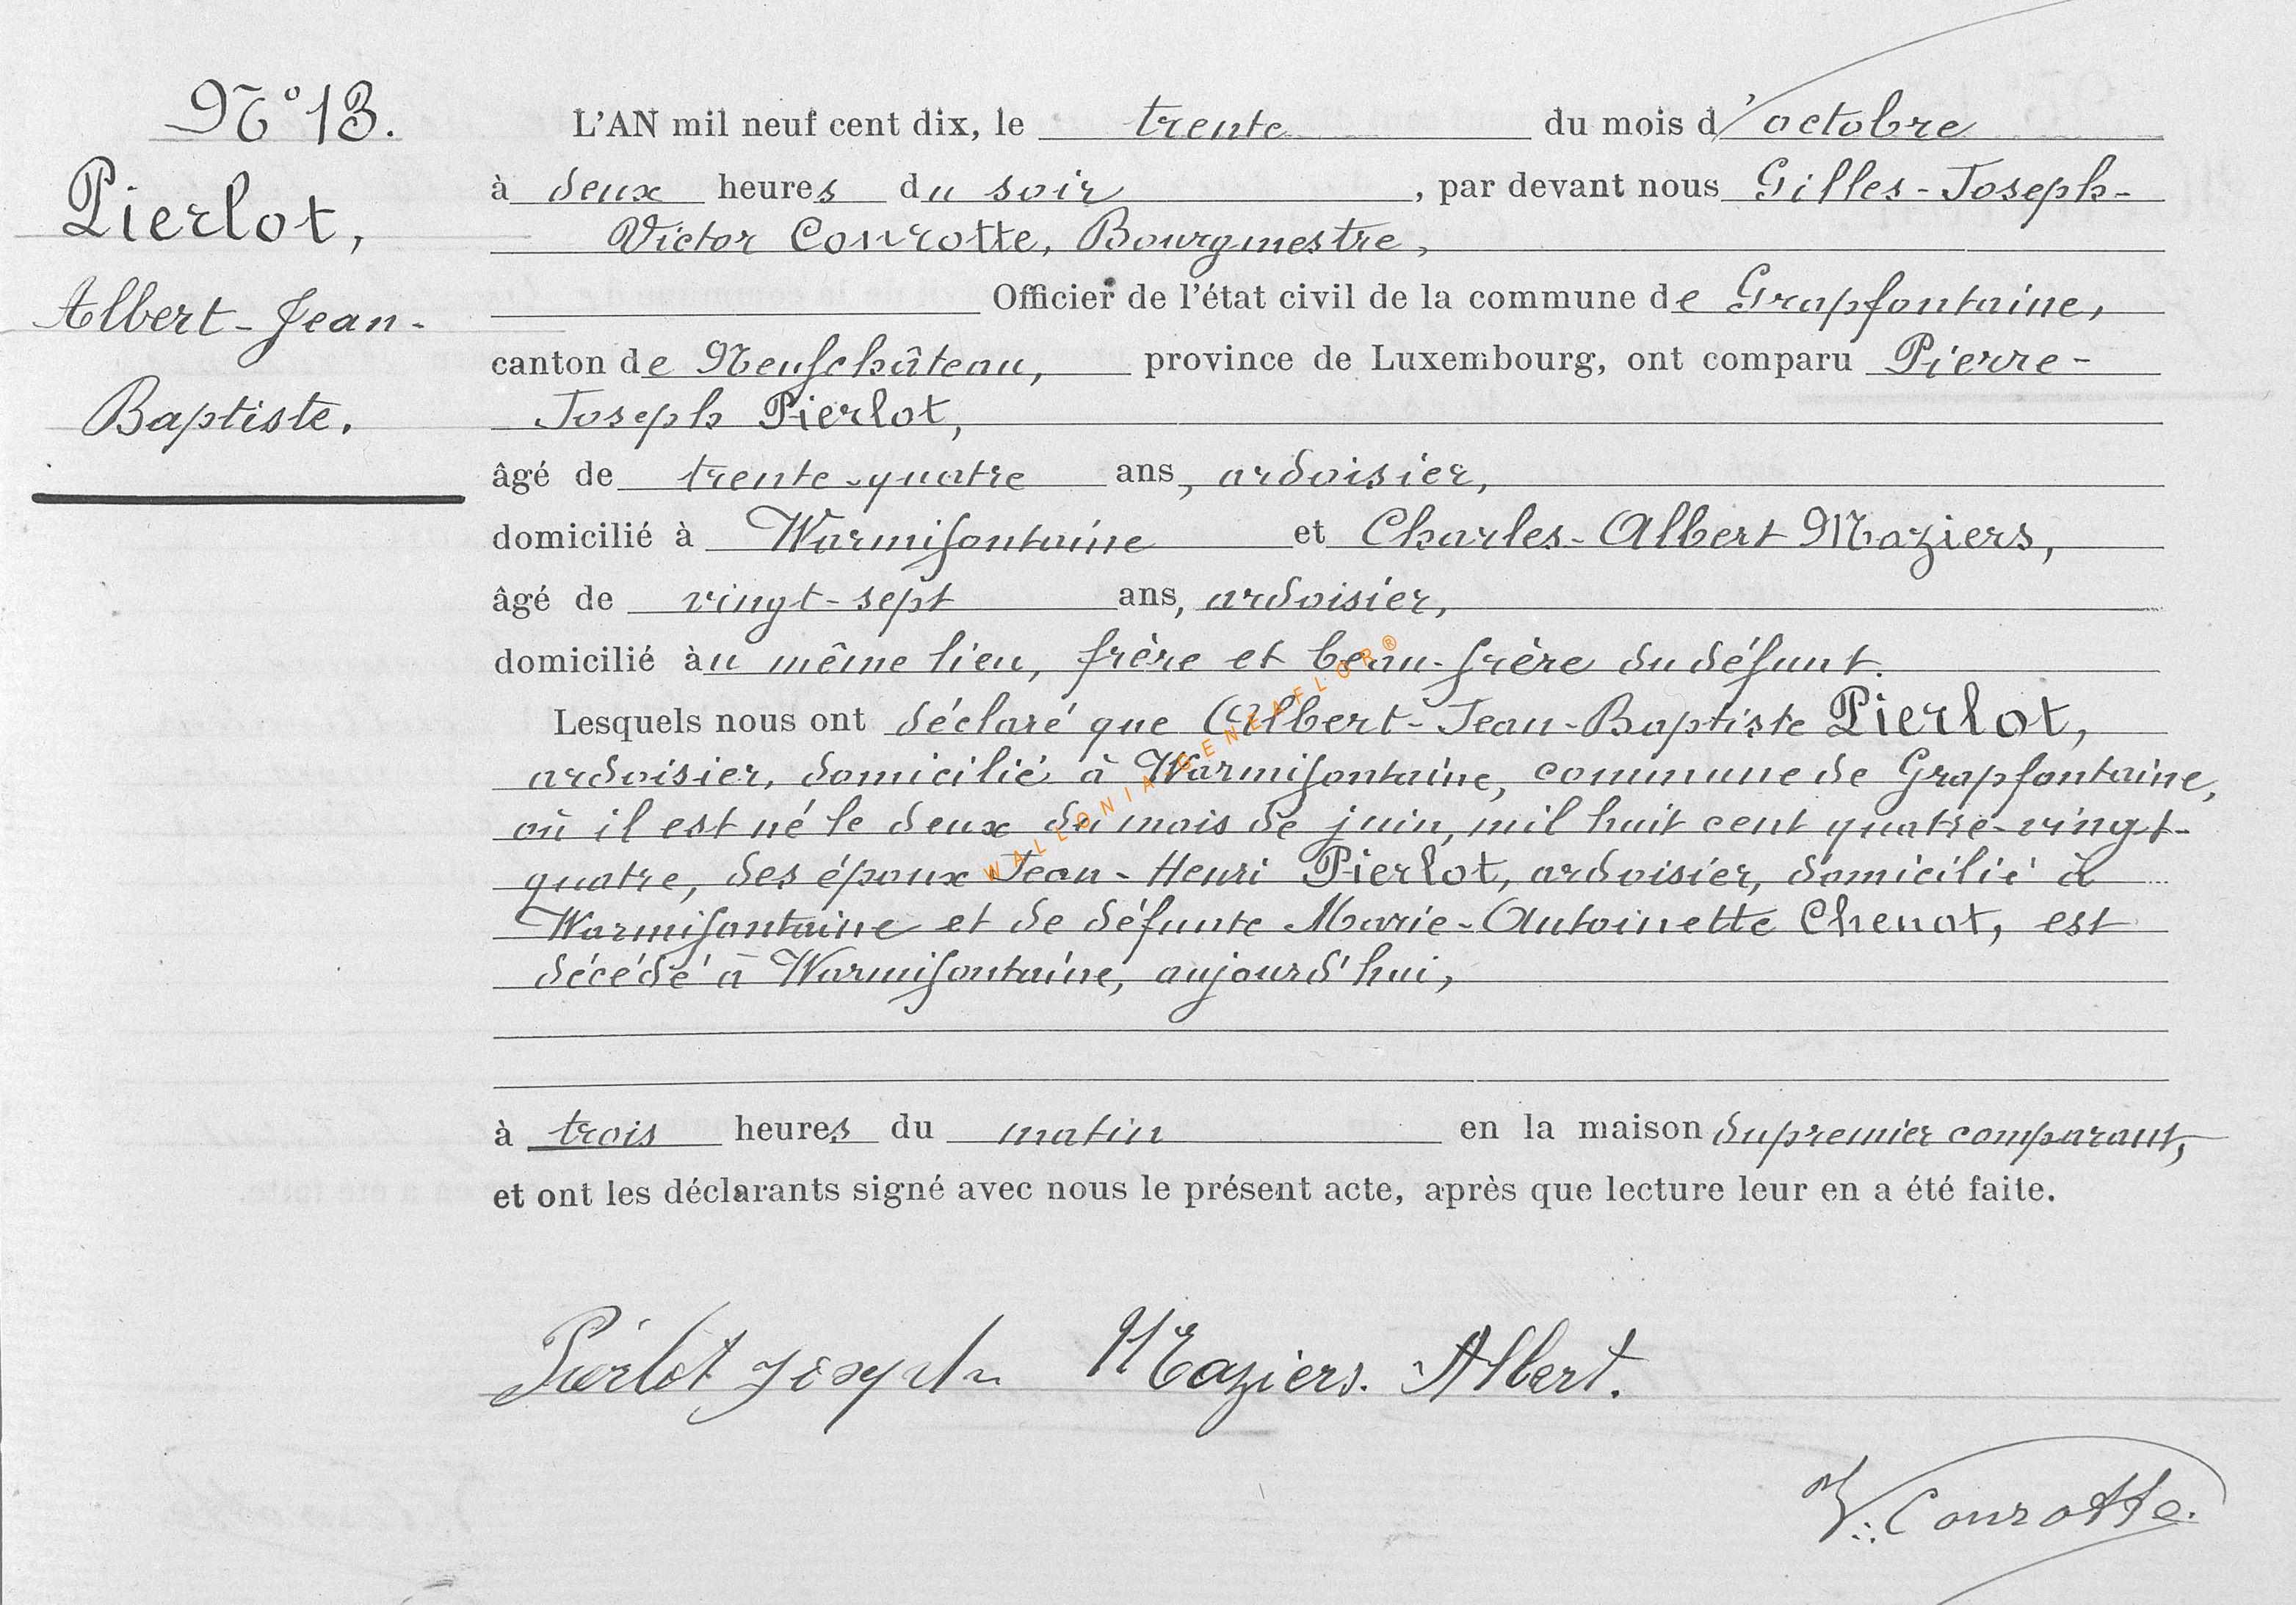 N° 13.
Pierlot,
Albert-Jean-
Baptiste.
L'AN mil neuf cent dix, le trente du mois d'octobre
à deux heures du soir, par devant nous Gilles-Joseph-
Victor Courotte, Bourgmestre,
Officier de l'état civil de la commune de Grapfontaine,
canton de Neufchâteau, province de Luxembourg, ont comparu Pierre-
Joseph Pierlot,
âgé de trente-quatre ans, ardoisier,
domicilié à Warmifontaine et Charles-Albert Maziers,
âgé de vingt-sept ans, ardoisier,
domicilié au même lieu, frère et beau-frère du défunt.
Lesquels nous ont déclaré que Albert-Jean-Baptiste Pierlot,
ardoisier, domicilié à Warmifontaine, commune de Grapfontaine,
où il est né le deux du mois de juin, mil huit cent quatre-vingt-
quatre, des époux Jean-Henri Pierlot, ardoisier, domicilié à
Warmifontaine et de défunte Marie-Antoinette Chenot, est
décédé à Warmifontaine, aujourd'hui,
à trois heures du matin en la maison du premier comparant,
et ont les déclarants signé avec nous le présent acte, après que lecture leur en a été faite.
Pierlot Joseph Maziers. Albert.
V. Courotte.
WALLONIA GENEAFLOR®